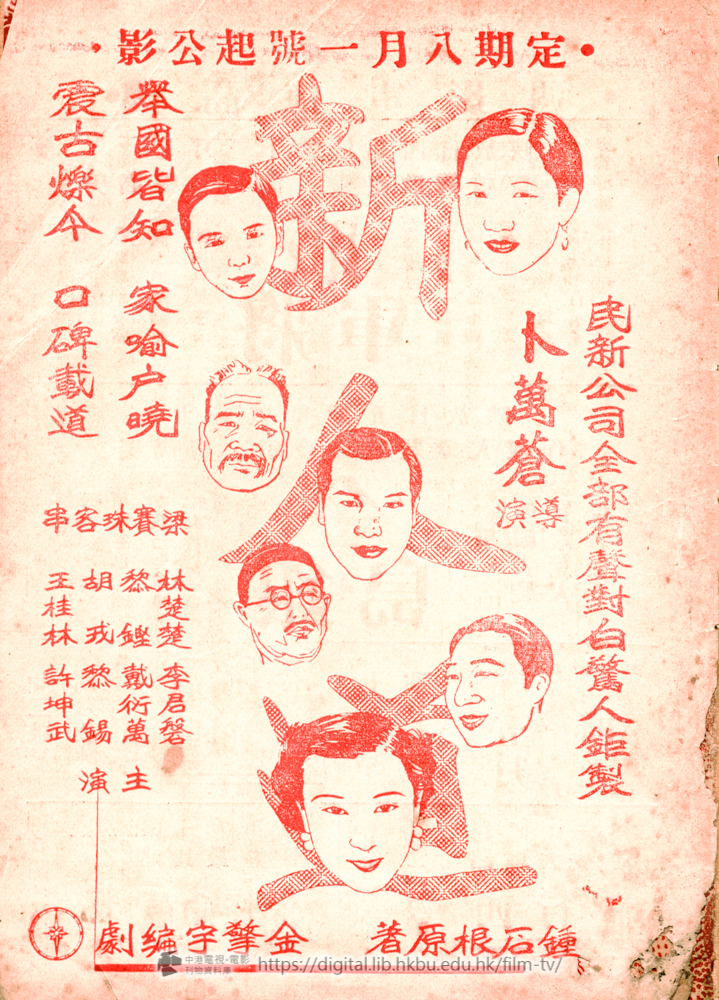 •定期八月一號起公影•
新人道
民新公司全部有聲對白驚人鉅製
卜萬蒼
導演
舉國皆知 家喻户曉
震古爍今 口碑載道
梁賽珠客串
林楚楚 李君磐
黎鏗 戴衍萬
胡戎 黎錫
王桂林 許坤武
主演
鍾石根原著 金擎宇編劇
中港電視·電影
刊物資料庫
https://digital.lib.hkbu.edu.hk/film-tv/